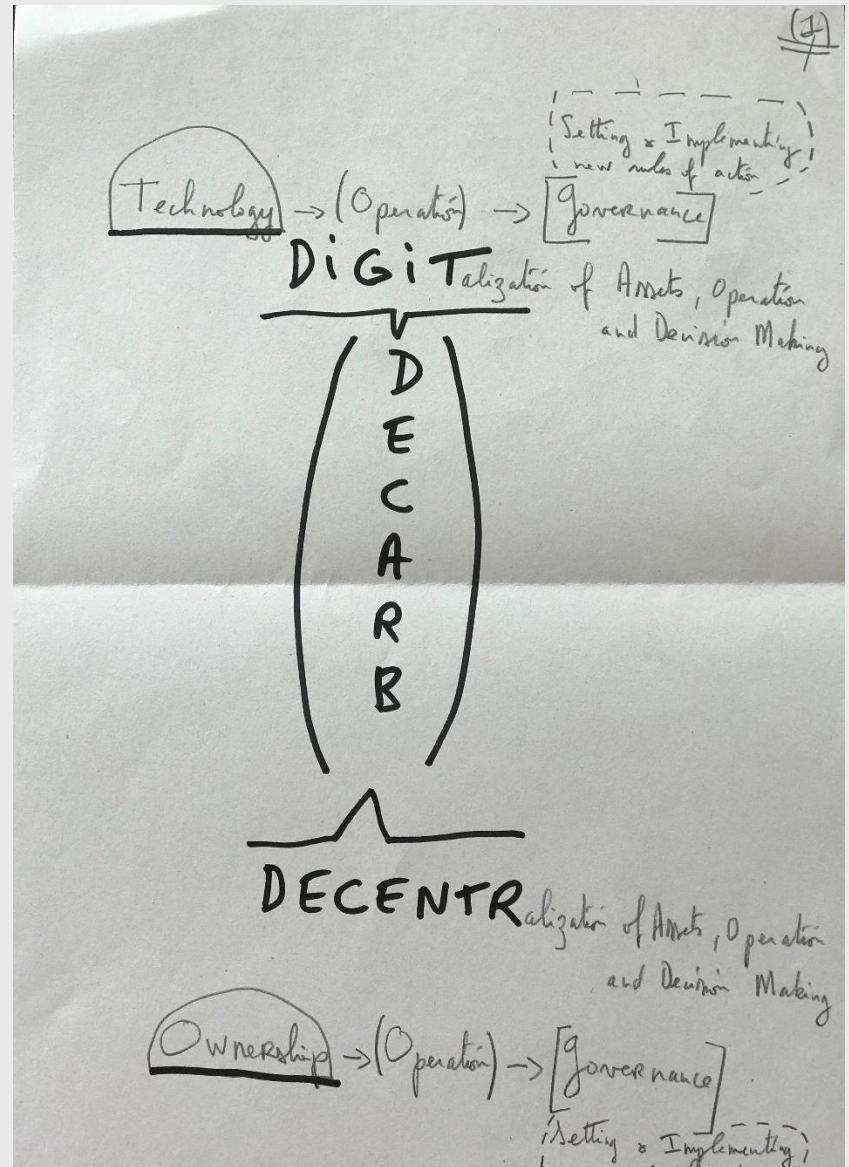 (1)
Setting & Implementing
new rules of action
Technology → (Operation) → [Governance]
DiGiTalization of Assets, Operation
and Decision Making
D
E
C
A
R
B
DECENTRalization of Assets, Operation
and Decision Making
Ownership → (Operation) → [Governance]
Setting & Implementing